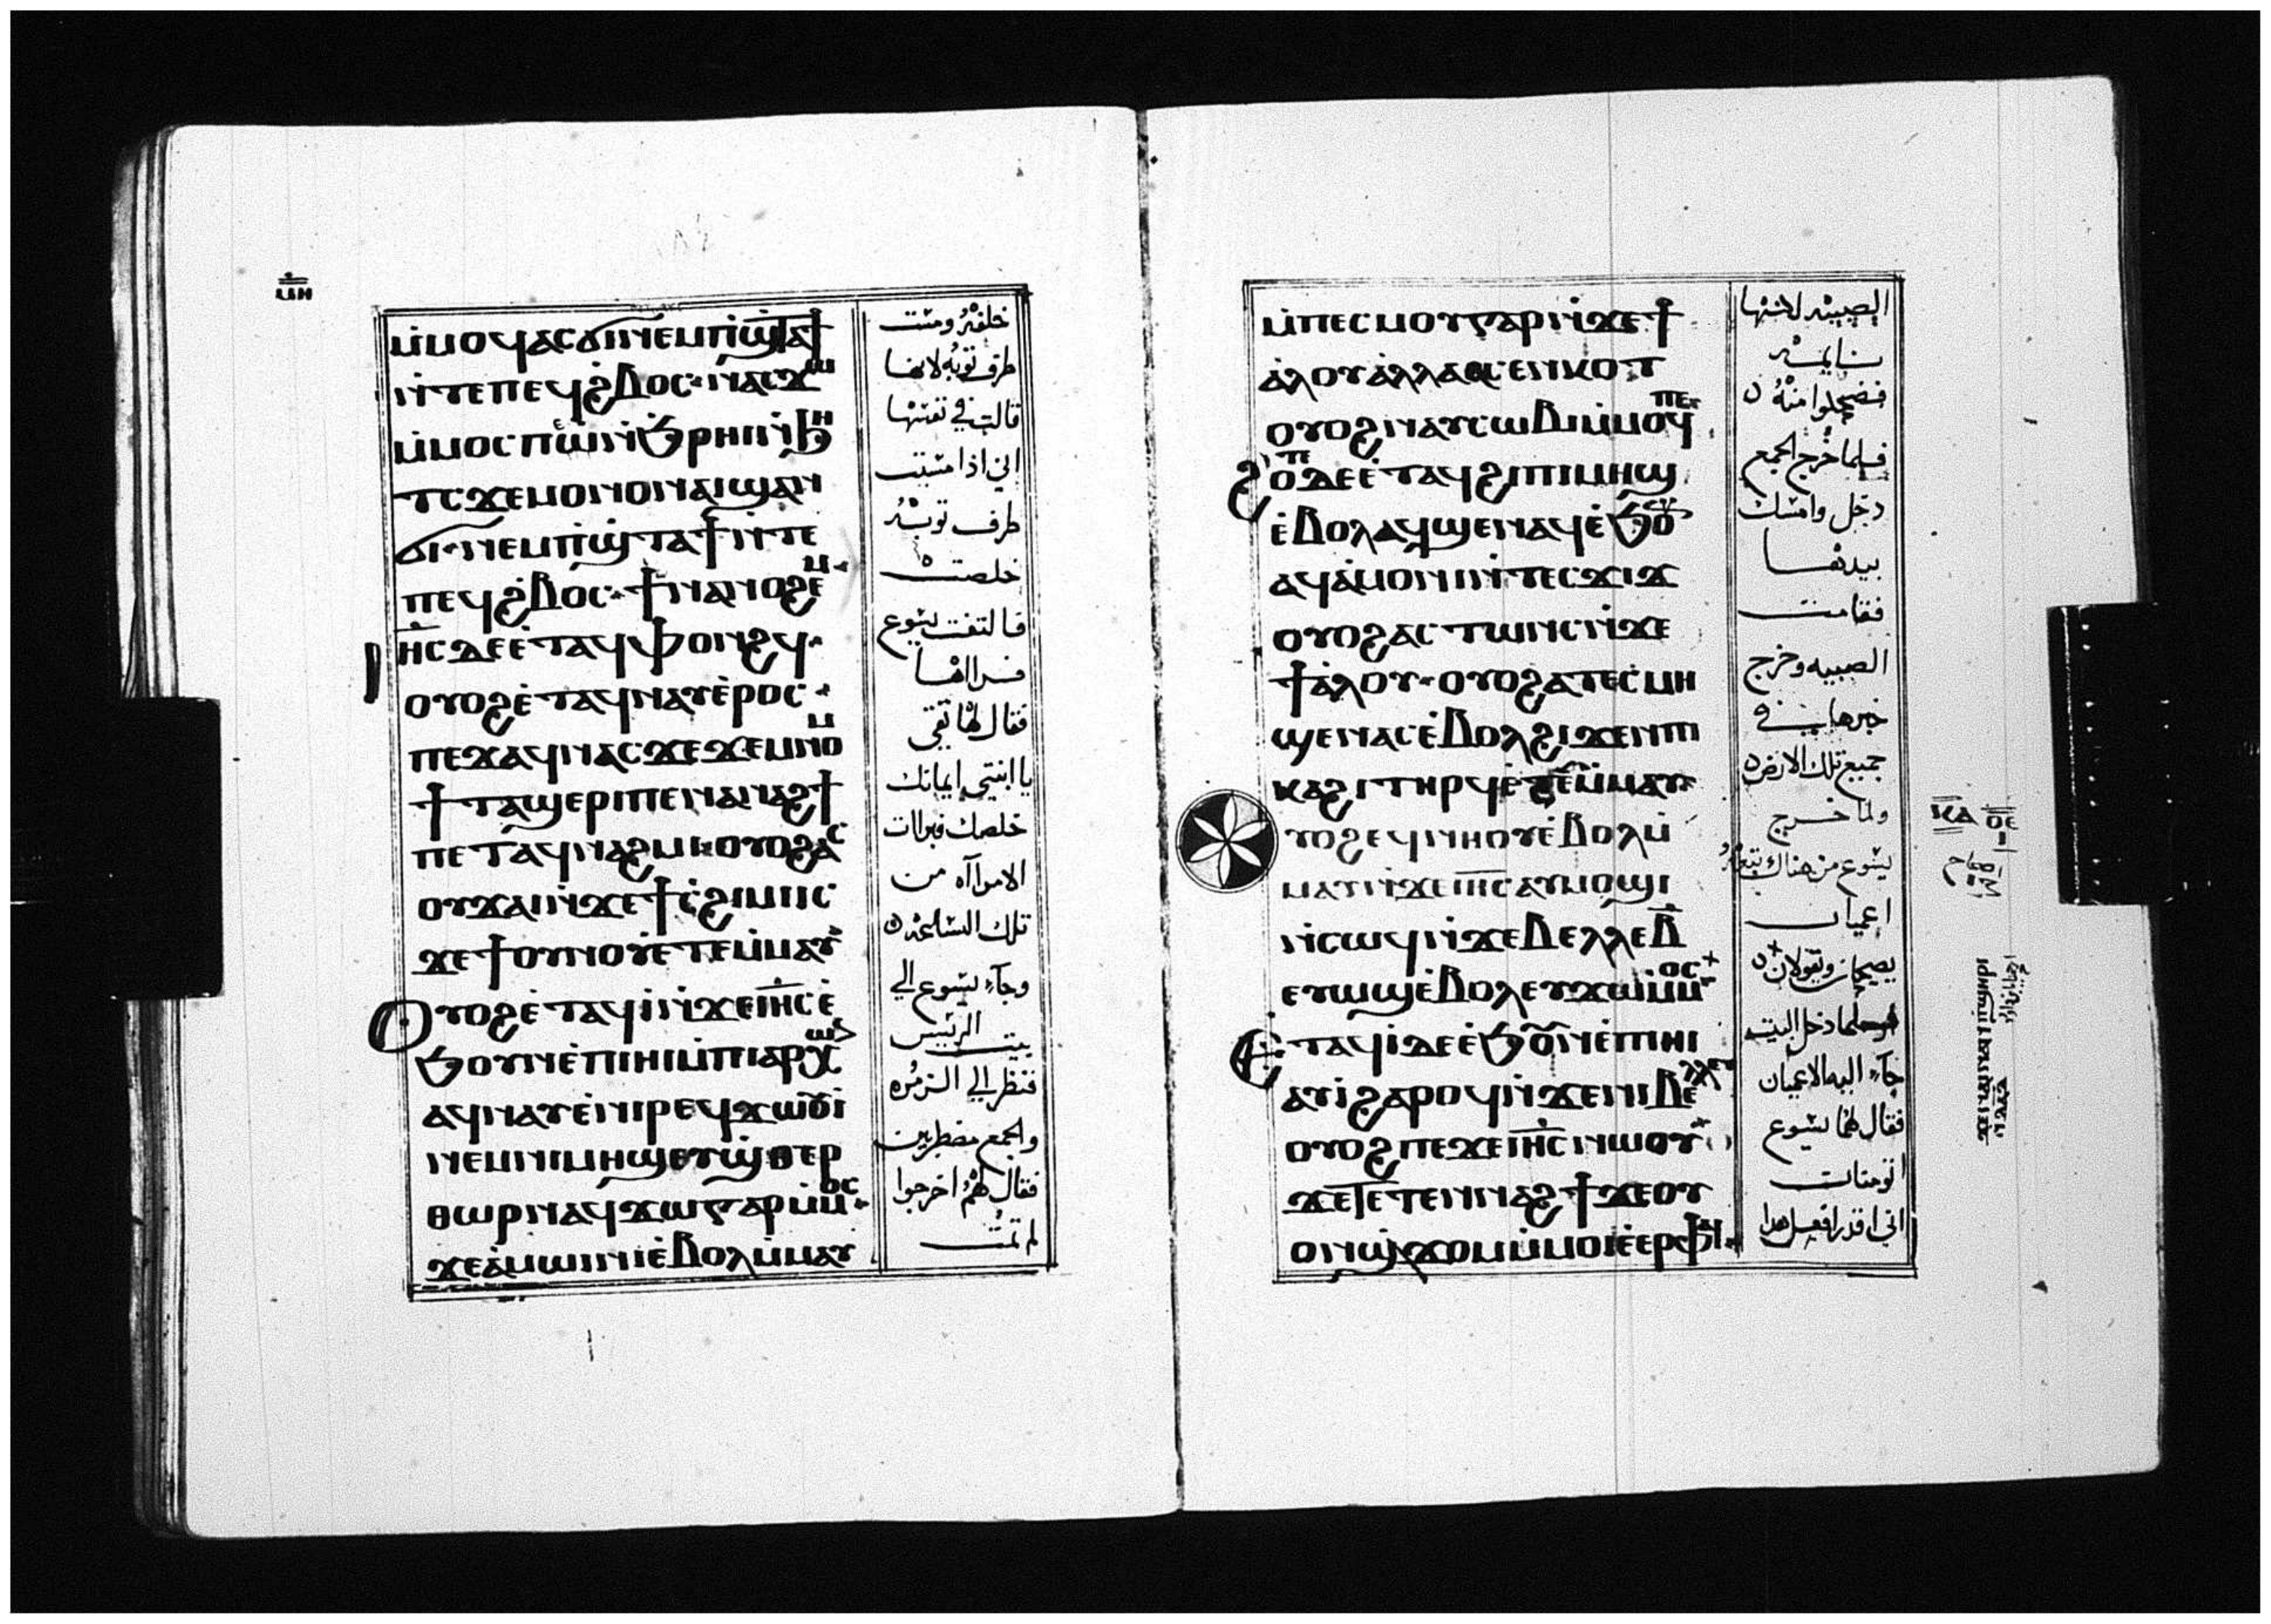 ⲙ̀ⲙⲟϥⲁⲥϭⲓⲛⲉⲙⲡ̀ϣⲧⲁϯ
ⲛ̀ⲧⲉⲡⲉϥϩ̀ⲃⲟⲥ ⲛⲁⲥϫⲱ
ⲙ̀ⲙⲟⲥ ⲛ̀ϧ̀ⲣⲏⲓⲛ̀ϧⲏ
ⲧⲥϫⲉⲙⲟⲛⲟⲛⲁⲓϣⲁⲛ
ϭⲓⲛⲉⲙⲡ̀ϣⲧⲁϯⲛ̀ⲧⲉ
ⲡⲉϥϩ̀ⲃⲟⲥ ϯⲛⲁⲛⲟϩⲉⲙ
ⲓⲏ̅ⲥ̅ⲇⲉⲉ̀ⲧⲁϥⲫⲟⲛϩϥ
ⲟⲩⲟϩⲉ̀ⲧⲁϥⲛⲁⲩⲉ̀ⲣⲟⲥ
ⲡⲉϫⲁϥⲛⲁⲥϫⲉϫⲉⲙⲛⲟⲙ
ϯⲧⲁϣⲉⲣⲓⲡⲉⲛⲁⲛⲁϩϯ
ⲡⲉⲧⲁϥⲛⲁϩⲙⲓ ⲟⲩⲟϩⲁⲥ
ⲟⲩϫⲁⲓⲛ̀ϫⲉϯⲥ̀ϩⲓⲙⲓⲓⲥ
ϫⲉϯⲟⲩⲛⲟⲩⲉⲧⲉⲙ̀ⲙⲁⲩ
ⲟⲩⲟϩⲉ̀ⲧⲁϥⲓ̀ⲛ̀ϫⲉⲓⲏ̅ⲥ̅ⲉ̀
ϧⲟⲩⲛⲉ̀ⲡⲏⲓⲙ̀ⲡⲓⲁⲣⲭⲱⲛ
ⲁϥⲛⲁⲩⲉ̀ⲛⲓⲣⲉϥϫⲱϫⲓ
ⲛⲉⲙⲛⲓⲙⲏϣⲉⲩϣ̀ⲑⲉⲣ
ⲑⲱⲣⲛⲁϥϫⲱⲅⲁⲣⲙ̀ⲙⲟⲥ
ϫⲉⲁ̀ⲙⲱⲓⲛⲓⲉ̀ⲃⲟⲗⲙ̀ⲙⲁⲩ
خلفه ومست
طرف ثوبه لانها
قالت في نفسها
اني اذا مسيت
طرف ثوبه
خلصت
فالتفت يسوع
فراها
فقال لها ثقي
يا ابنتي ايمانك
خلصك فبرات
الامراآه من
تلك الساعه
وجآء يسوع الي
بيت الريس
فنظر الي الزمره
والجمع مضطربين
فقال لهم اخرجوا
لم تمت
ⲙ̀ⲡⲉⲥⲙⲟⲩⲅⲁⲣⲛ̀ϫⲉϯ
ⲁ̀ⲗⲟⲩⲁ̀ⲗⲗⲁⲁⲥⲉⲛⲕⲟⲧ
ⲟⲩⲟϩⲛⲁⲩⲥⲱⲃⲓⲙ̀ⲙⲟϥⲡⲉ
ϩⲟⲧⲉⲇⲉⲉ̀ⲧⲁϥϩⲓⲡⲓⲙⲏϣ
ⲉ̀ⲃⲟⲗⲁϥϣⲉⲛⲁϥⲉ̀ϧⲟⲩⲛ
ⲁϥⲁ̀ⲙⲟⲛⲓⲛ̀ⲧⲉⲥϫⲓϫ
ⲟⲩⲟϩⲁⲥⲧⲱⲛⲥⲛ̀ϫⲉ
ϯⲁ̀ⲗⲟⲩ ⲟⲩⲟϩⲁⲧⲉⲥ̀ⲙⲏ
ϣⲉⲛⲁⲥⲉ̀ⲃⲟⲗϩⲓϫⲉⲛⲡⲓ
ⲕⲁϩⲓⲧⲏⲣϥⲉ̀ⲧⲉⲙ̀ⲙⲁⲩ
ⲩⲟϩⲉϥⲛⲏⲟⲩⲉ̀ⲃⲟⲗⲙ̀
ⲙⲁⲩⲛ̀ϫⲉⲓⲏ̅ⲥ̅ⲁⲩⲙⲟϣⲓ
ⲛ̀ⲥⲱϥⲛ̀ϫⲉⲃⲉⲗⲗⲉⲃ̅
ⲉⲩⲱϣⲉ̀ⲃⲟⲗⲉⲩϫⲱⲙ̀ⲙⲟⲥ
ⲉⲧⲁϥⲓ̀ⲇⲉⲉ̀ϧⲟⲩⲛⲉ̀ⲡⲓⲏⲓ
ⲁⲩⲓ̀ϩⲁⲣⲟϥⲛ̀ϫⲉⲛⲓⲃⲉⲗⲗⲉⲩ
ⲟⲩⲟϩⲡⲉϫⲉⲓⲏ̅ⲥ̅ⲛⲱⲟⲩ
ϫⲉⲧⲉⲧⲉⲛⲛⲁϩϯϫⲉⲟⲩ
ⲟⲛϣ̀ϫⲟⲙⲙ̀ⲙⲟⲓⲉ̀ⲉⲣⲫⲁⲓ
الصبيه لاكنها
نايمه
فضحكوا منه
فلما خرج الجمع
دخل وامسك
بيدها
فقامت
الصبيه وخرج
خبرها في
جميع تلك الارض
ولما خرج
يسوع من هناك تبعه
اعميان
يصيحان ويقولان
فلما دخل البيت
جآء اليه الاعميان
فقال لهما يسوع
اتومنان
اني اقدر افعل هدا
ⲕⲁ ⲟⲉ